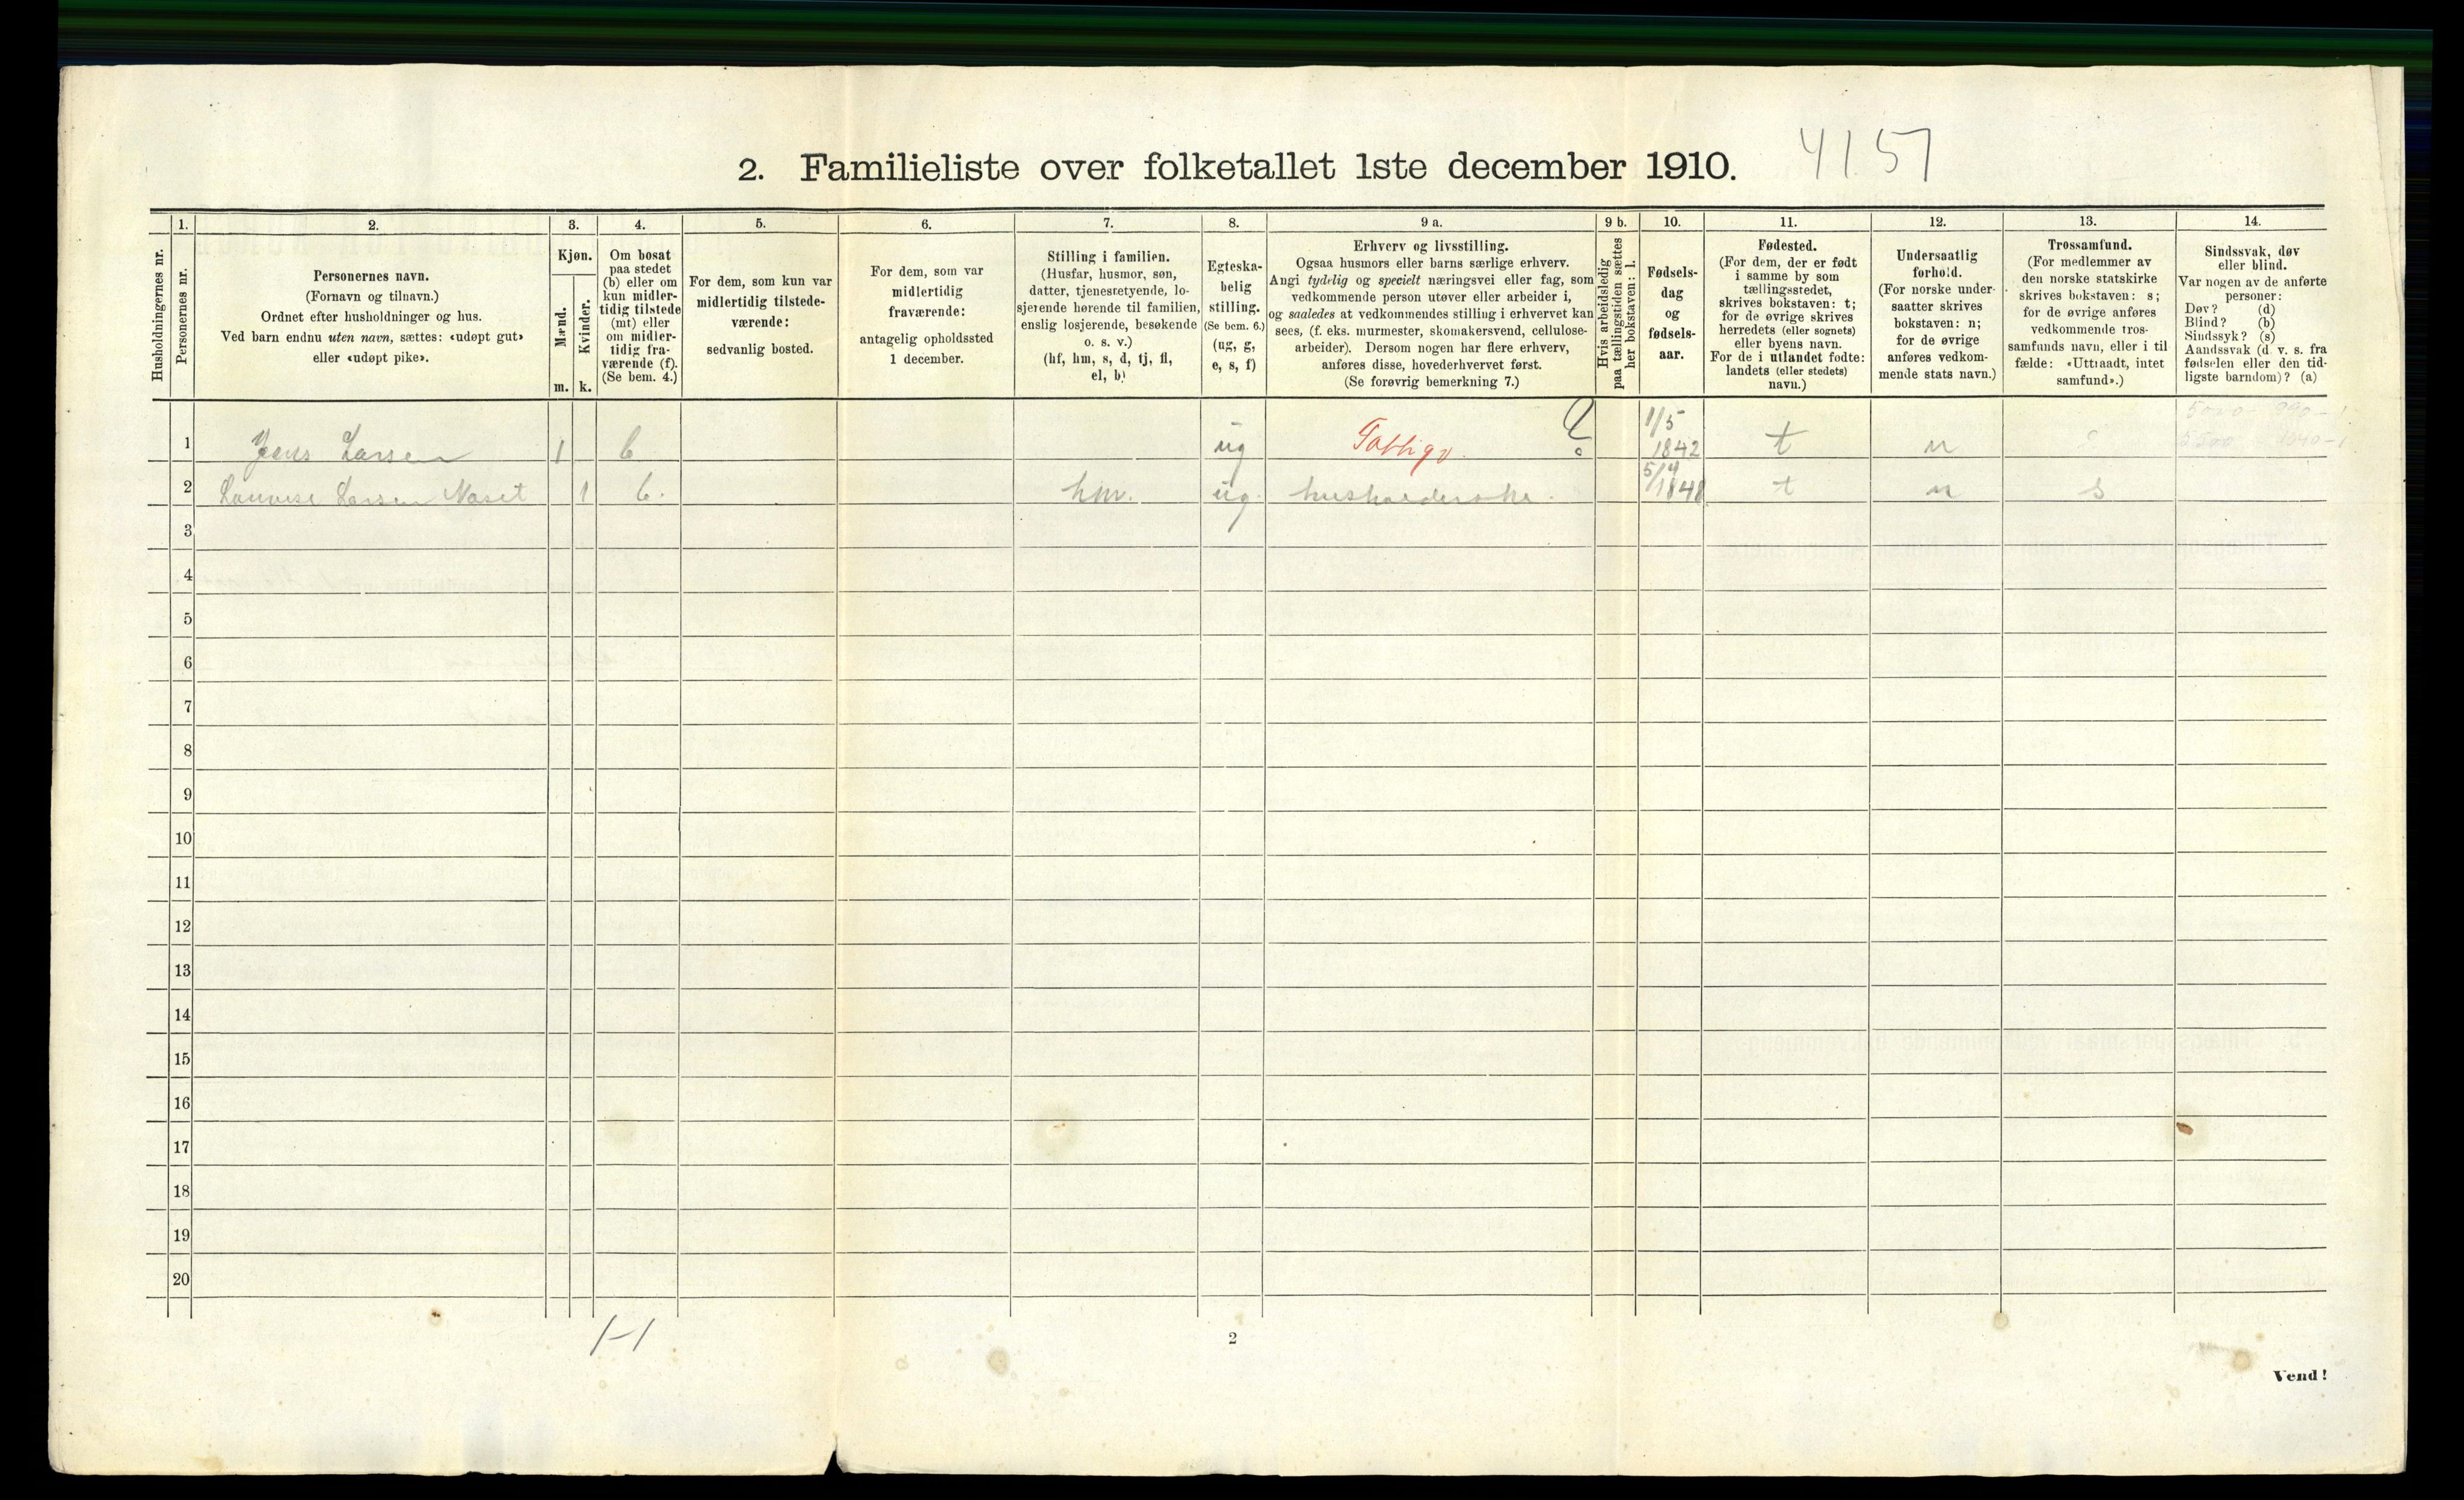 2. Familieliste over folketallet 1ste december 1910. 4157
1. 2. 3. 4. 5. 6. 7. 8. 9 a. 9 b. 10. 11. 12. 13. 14.
Husholdningernes nr.
Personernes nr.
Personernes navn.
(Fornavn og tilnavn.)
Ordnet efter husholdninger og hus.
Ved barn endnu uten navn, sættes: «udøpt gut»
eller «udøpt pike».
Kjøn.
Mænd.
m.
Kvinder.
k.
Om bosat
paa stedet
(b) eller om
kun midler-
tidig tilstede
(mt) eller
om midler-
tidig fra-
værende (f).
(Se bem. 4.)
For dem, som kun var
midlertidig tilstede-
værende:
sedvanlig bosted.
For dem, som var
midlertidig
fraværende:
antagelig opholdssted
1 december.
Stilling i familien.
(Husfar, husmor, søn,
datter, tjenestetyende, lo-
sjerende hørende til familien,
enslig losjerende, besøkende
o. s. v.)
(hf, hm, s, d, tj, fl,
el, b)
Egteska-
belig
stilling.
(Se bem. 6.)
(ug, g,
e, s, f)
Erhverv og livsstilling.
Ogsaa husmors eller barns særlige erhverv.
Angi tydelig og specielt næringsvei eller fag, som
vedkommende person utøver eller arbeider i,
og saaledes at vedkommendes stilling i erhvervet kan
sees, (f. eks. murmester, skomakersvend, cellulose-
arbeider). Dersom nogen har flere erhverv,
anføres disse, hovederhvervet først.
(Se forøvrig bemerkning 7.)
Hvis arbeidsledig
paa tællingstiden sættes
her bokstaven: l.
Fødsels-
dag
og
fødsels-
aar.
Fødested.
(For dem, der er født
i samme by som
tællingsstedet,
skrives bokstaven: t;
for de øvrige skrives
herredets (eller sognets)
eller byens navn.
For de i utlandet fødte:
landets (eller stedets)
navn.)
Undersaatlig
forhold.
(For norske under-
saatter skrives
bokstaven: n;
for de øvrige
anføres vedkom-
mende stats navn.)
Trossamfund.
(For medlemmer av
den norske statskirke
skrives bokstaven: s;
for de øvrige anføres
vedkommende tros-
samfunds navn, eller i til
fælde: «Uttraadt, intet
samfund».)
Sindssvak, døv
eller blind.
Var nogen av de anførte
personer:
Døv? (d)
Blind? (b)
Sindssyk? (s)
Aandssvak (d. v. s. fra
fødselen eller den tid-
ligste barndom)? (a)
1 Jens Larsen 1 b ug Fattigu. ? 1/5 1842 t n s
2 Lauvise Larsen Naset 1 b. hm. ug. husholderske. 5/9 1848 t n s
3
4
5
6
7
8
9
10
11
12
13
14
15
16
17
18
19
20
1-1
2
Vend!